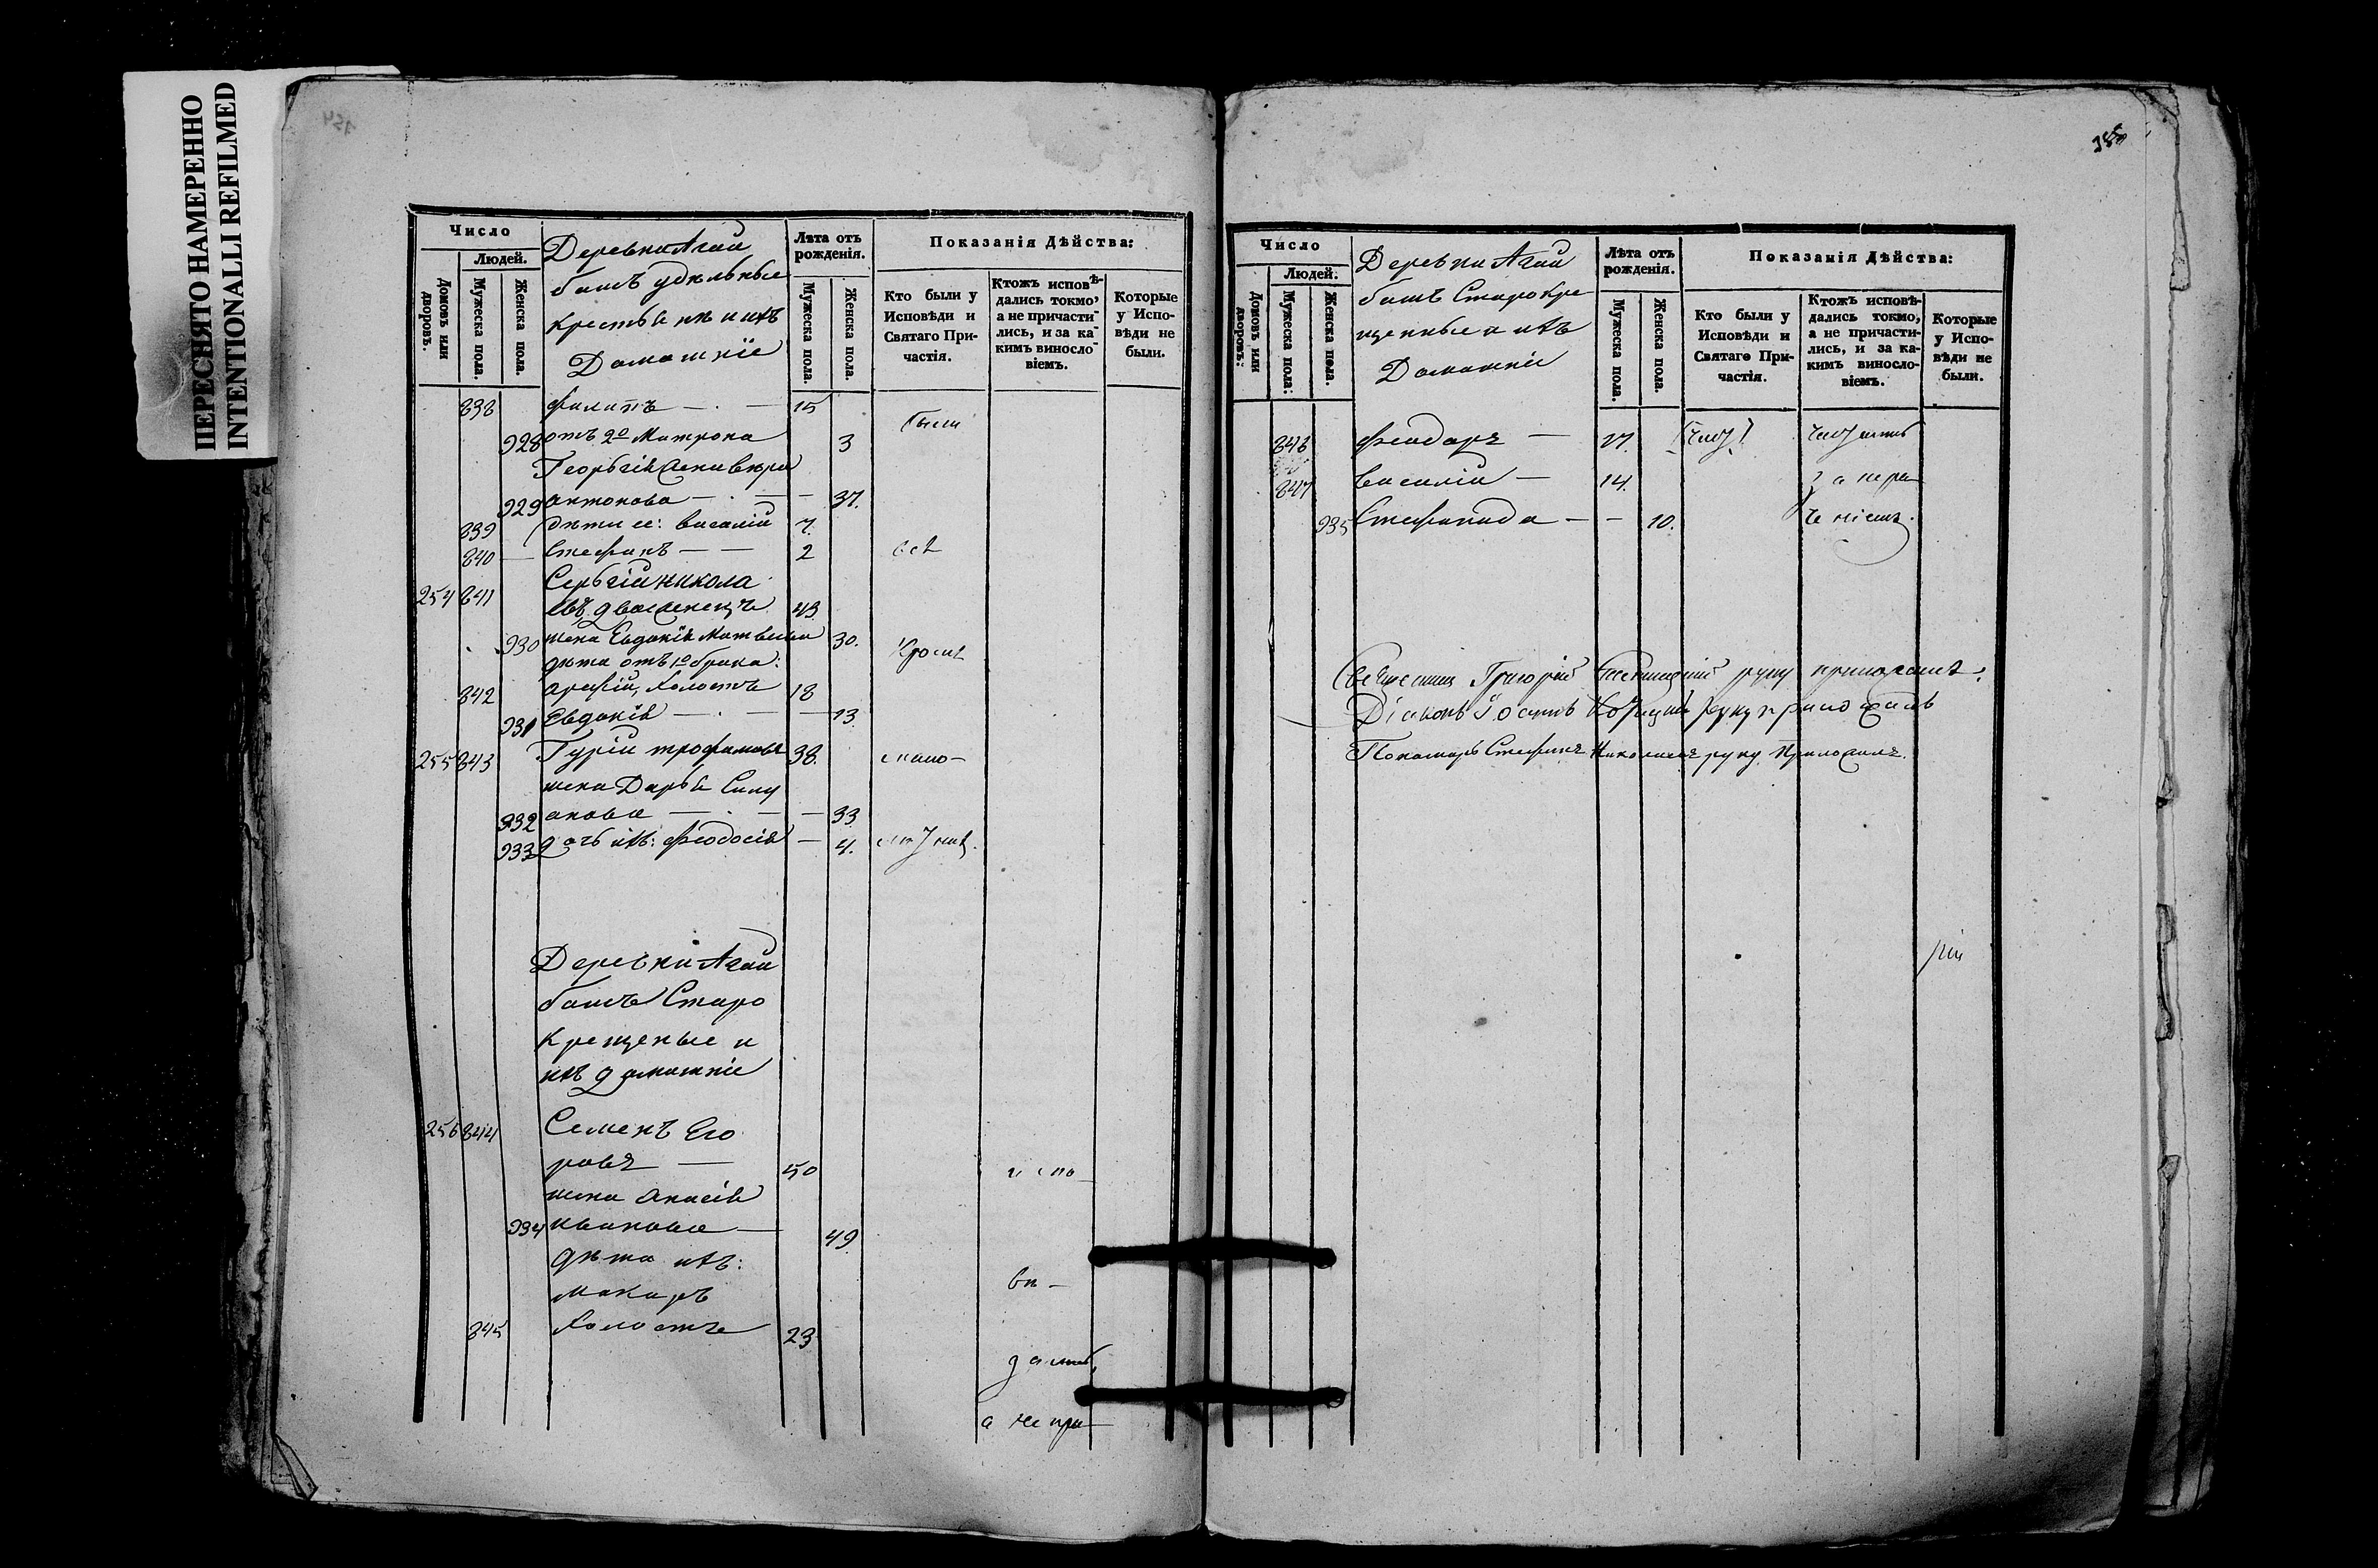 ПЕРЕСНЯТО НАМЕРЕННО
INTENTIONALLI REFILMED
Число
Людей.
Домовъ или дворовъ.
Мужеска пола.
Женска пола.
Деревни Агай
башъ удѣльные
крестьянѣ и ихъ
Домашніе
Лѣта отъ рожденія.
Мужеска пола.
Женска пола.
Показанія Дѣйства:
Кто были у
Исповѣди и
Святаго При-
частія.
Ктожъ исповѣ-
дались токмо,
а не причасти-
лись, и за ка-
кимъ винosло-
віемъ.
Которые
у Испо-
вѣди не
были.
838 Филипъ — 15
были
928 отъ 2º Матрона 3
Георгія
929 антонова — 37.
839 дѣти ее: василій 7.
840 Стефанъ — 2 всѣ
Сергій никола
254 841 евъ 43
930 жена Евдокія Матвеева 30.
дѣти отъ 1º брака:
кромѣ
842 холостъ 18
931 Евдокія — 13
255 843 Гурій трофимовъ 38.
жена Дарья Силу
932 анова — 33
933 дочь ихъ: Феодосія — 4.
Деревни Агай
башъ Старо
крещеные и
ихъ домашніе
256 844 Семенъ Его
ровъ — 50 испо
жена
934 иванова — 49
дѣти ихъ:
макаръ
вѣ-
845 холостъ 23
дались,
а не при
388
Число
Людей.
Домовъ или дворовъ:
Мужеска пола:
Женска пола.
Деревни Агай
башъ Старокре
щенные и ихъ
Домашніе
Лѣта отъ
рожденія.
Мужеска пола.
Женска пола.
Показанія Дѣйства:
Кто были у
Исповѣди и
Святаго При-
частія.
Ктожъ исповѣ-
дались токмо,
а не причасти-
лись, и за ка-
кимъ винosло-
віемъ.
Которые
у Испо-
вѣди не
были.
846 Феодоръ — 17.
847 Василій — 14.
935 Стефанида — 10.
Священникъ Григорій руку приложилъ.
Діаконъ руку приложилъ
Пономарь Стефанъ руку приложилъ.